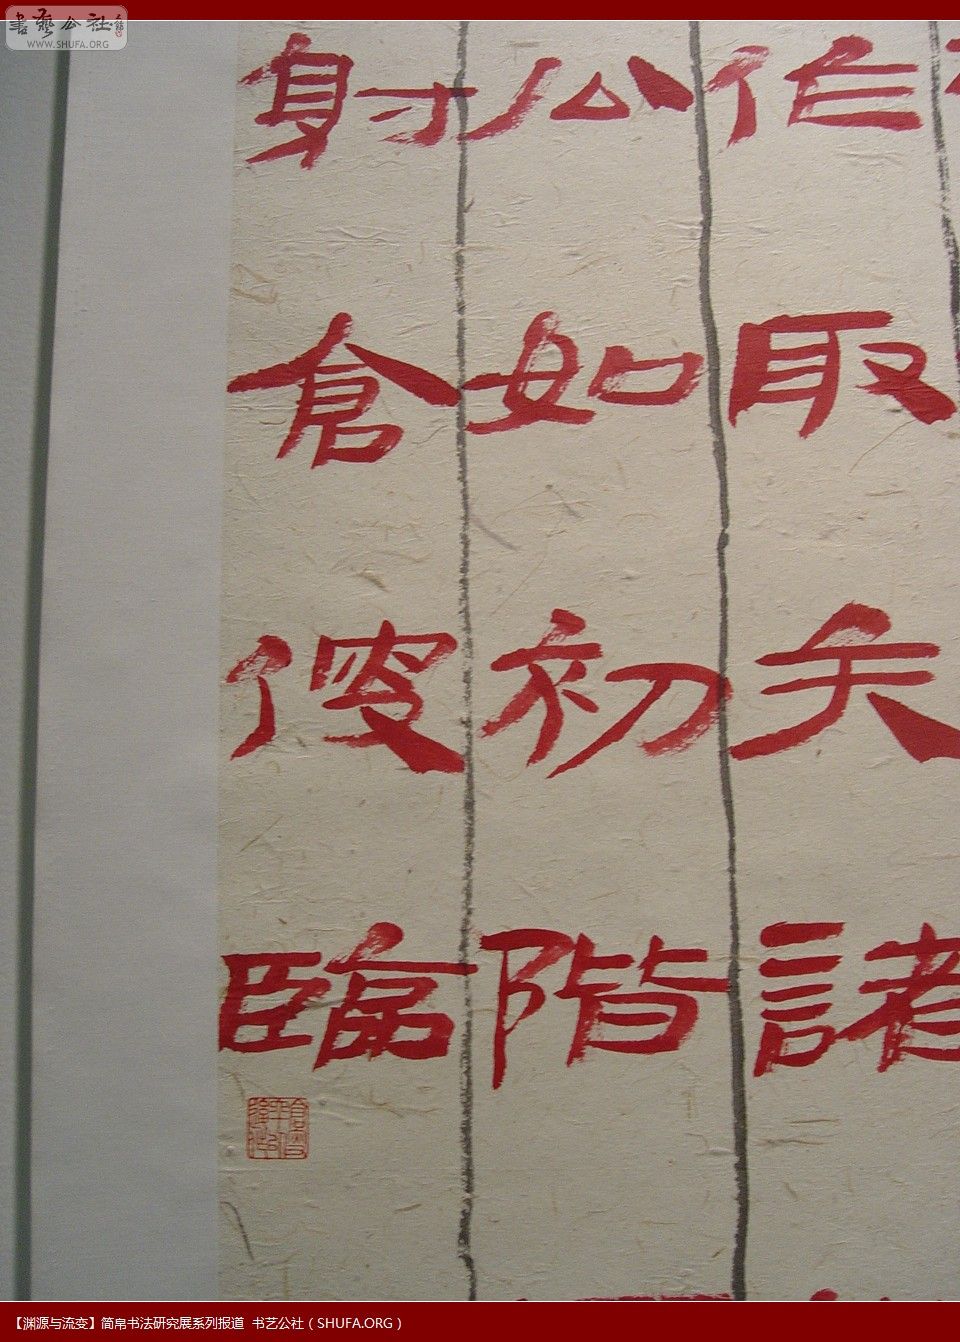 書藝公社
WWW.SHUFA.ORG
作取矢諸
公如初階
射倉傁臨
【渊源与流变】简帛书法研究展系列报道 书艺公社（SHUFA.ORG）